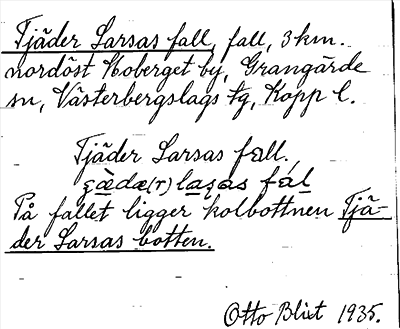 Tjäder Larsas fall, fall, 3 km.
nordöst Moberget by, Grangärde
sn, Västerbergslags tg, Kopp l.
Tjäder Larsas fall,
På fallet ligger kolbottnen Tjä-
der Larsas botten.
Otto Blixt 1935.